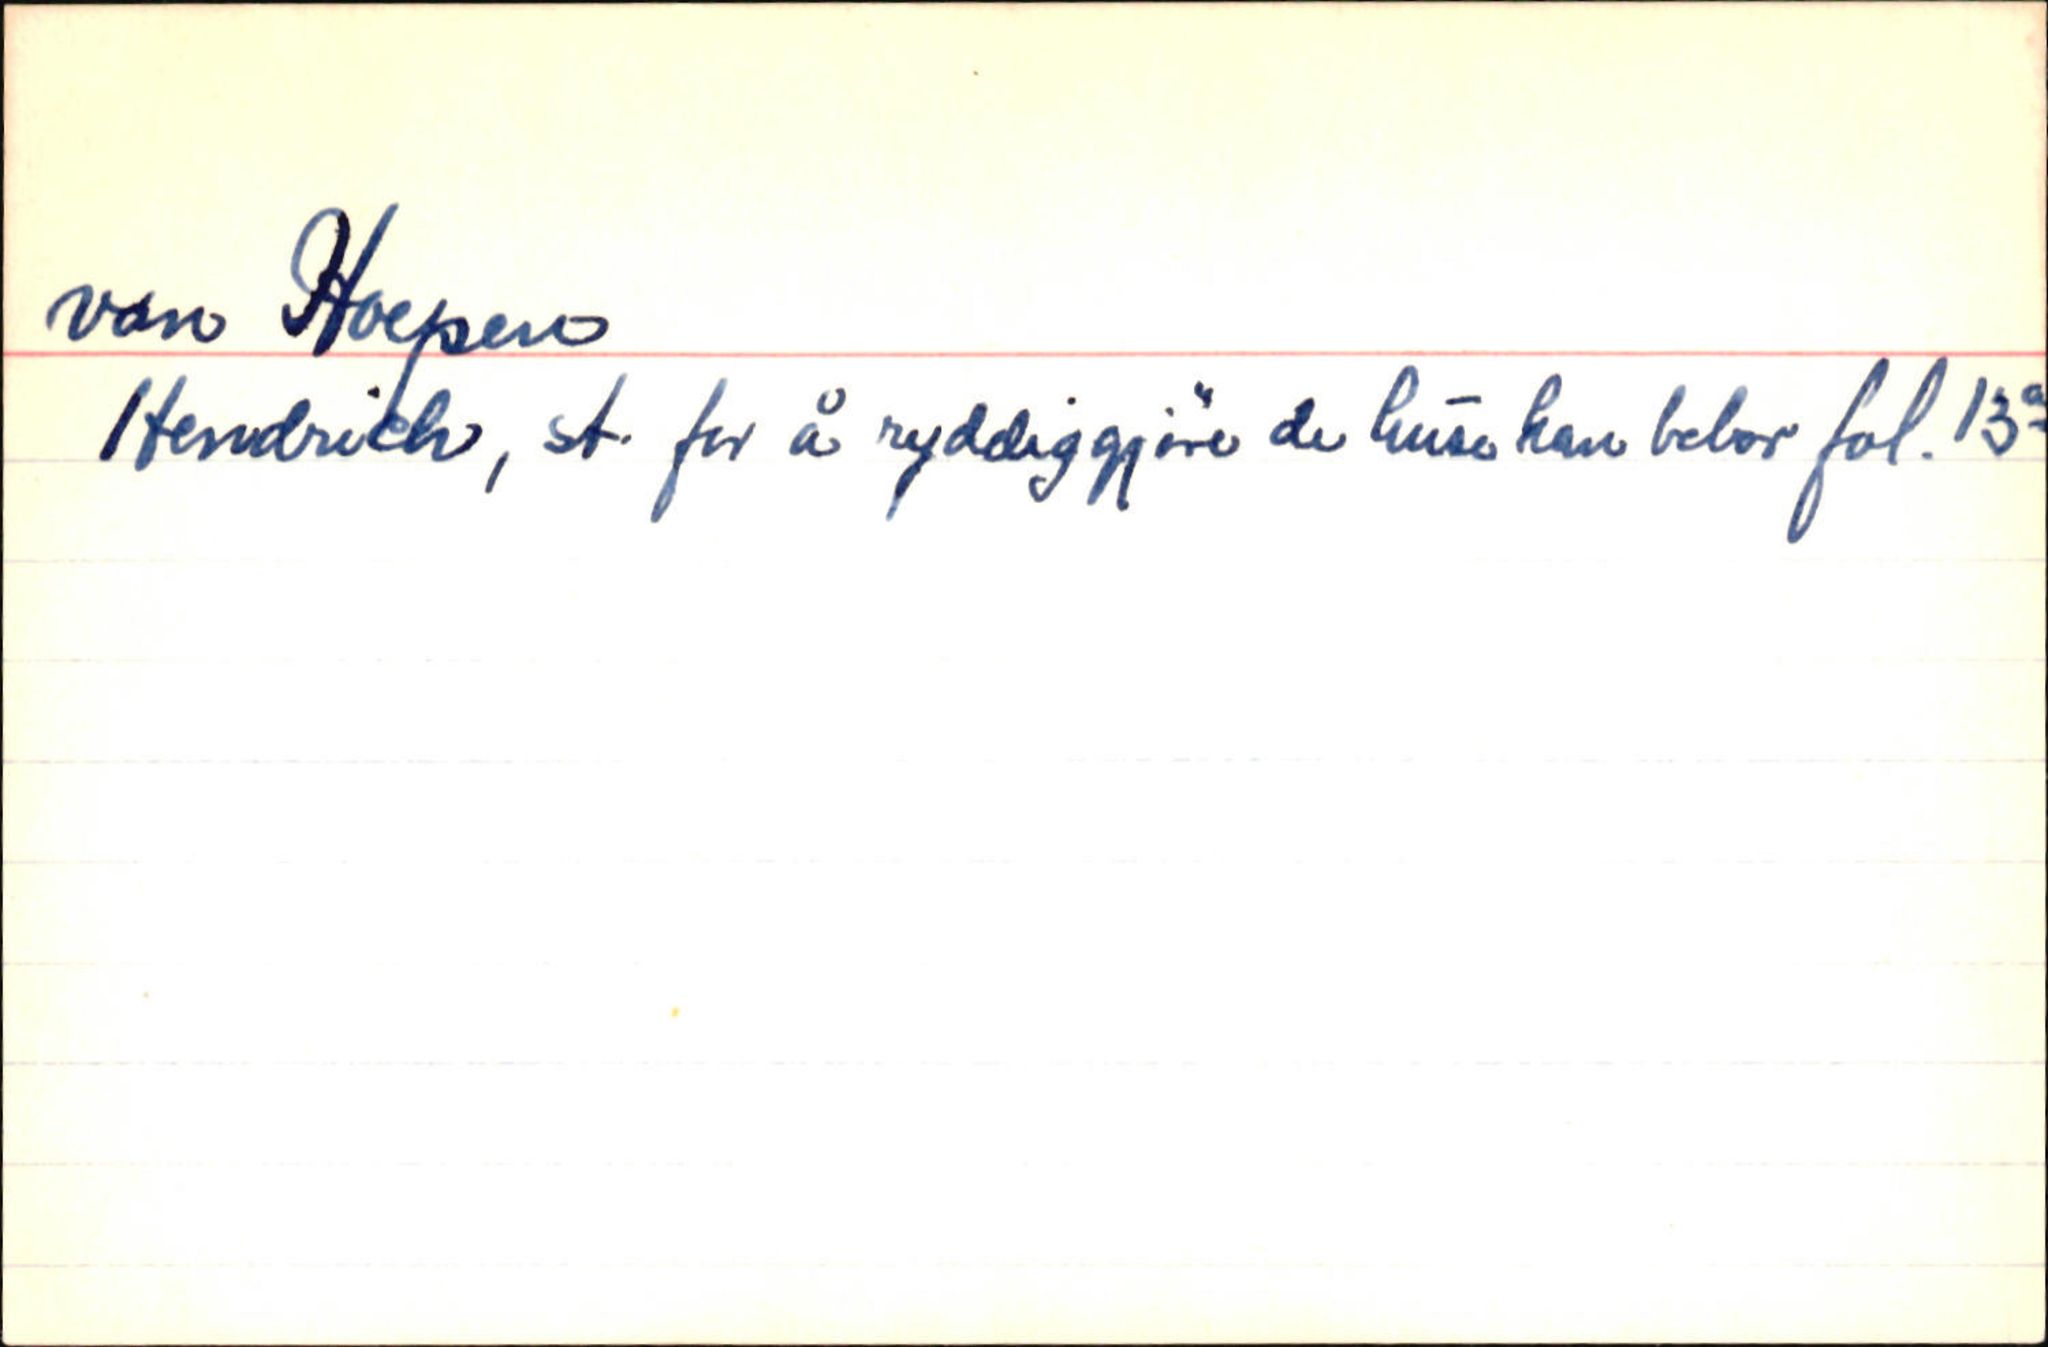 van Hoepen
Hendrich, st. for å ryddiggjöre de huse han bebor fol. 13a